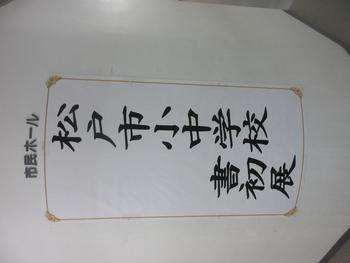 市民ホール
松戸市小中学校
書初展